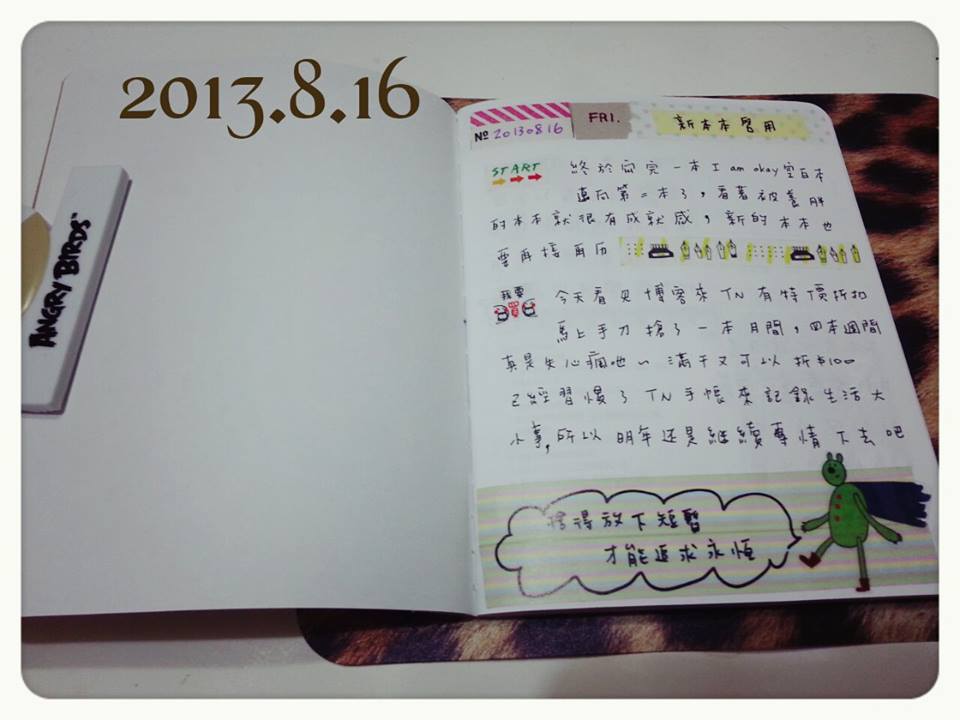 2013.8.16
ANGRY BIRDS™
Nº 20130816
FRI.
新本本啓用
START
終於寫完一本 I am okay 空白本
邁向第二本了,看著被養胖
的本本就很有成就感,新的本本也
要再接再厉
我要
買
今天看見博客來TN有特價折扣
馬上手刀搶了一本月間,四本週間
真是失心瘋吔~滿千又可以折$100
已經習慣了TN手帳來記錄生活大
小事,所以明年还是継續專情下去吧
捨得放下短暫
才能追求永恆